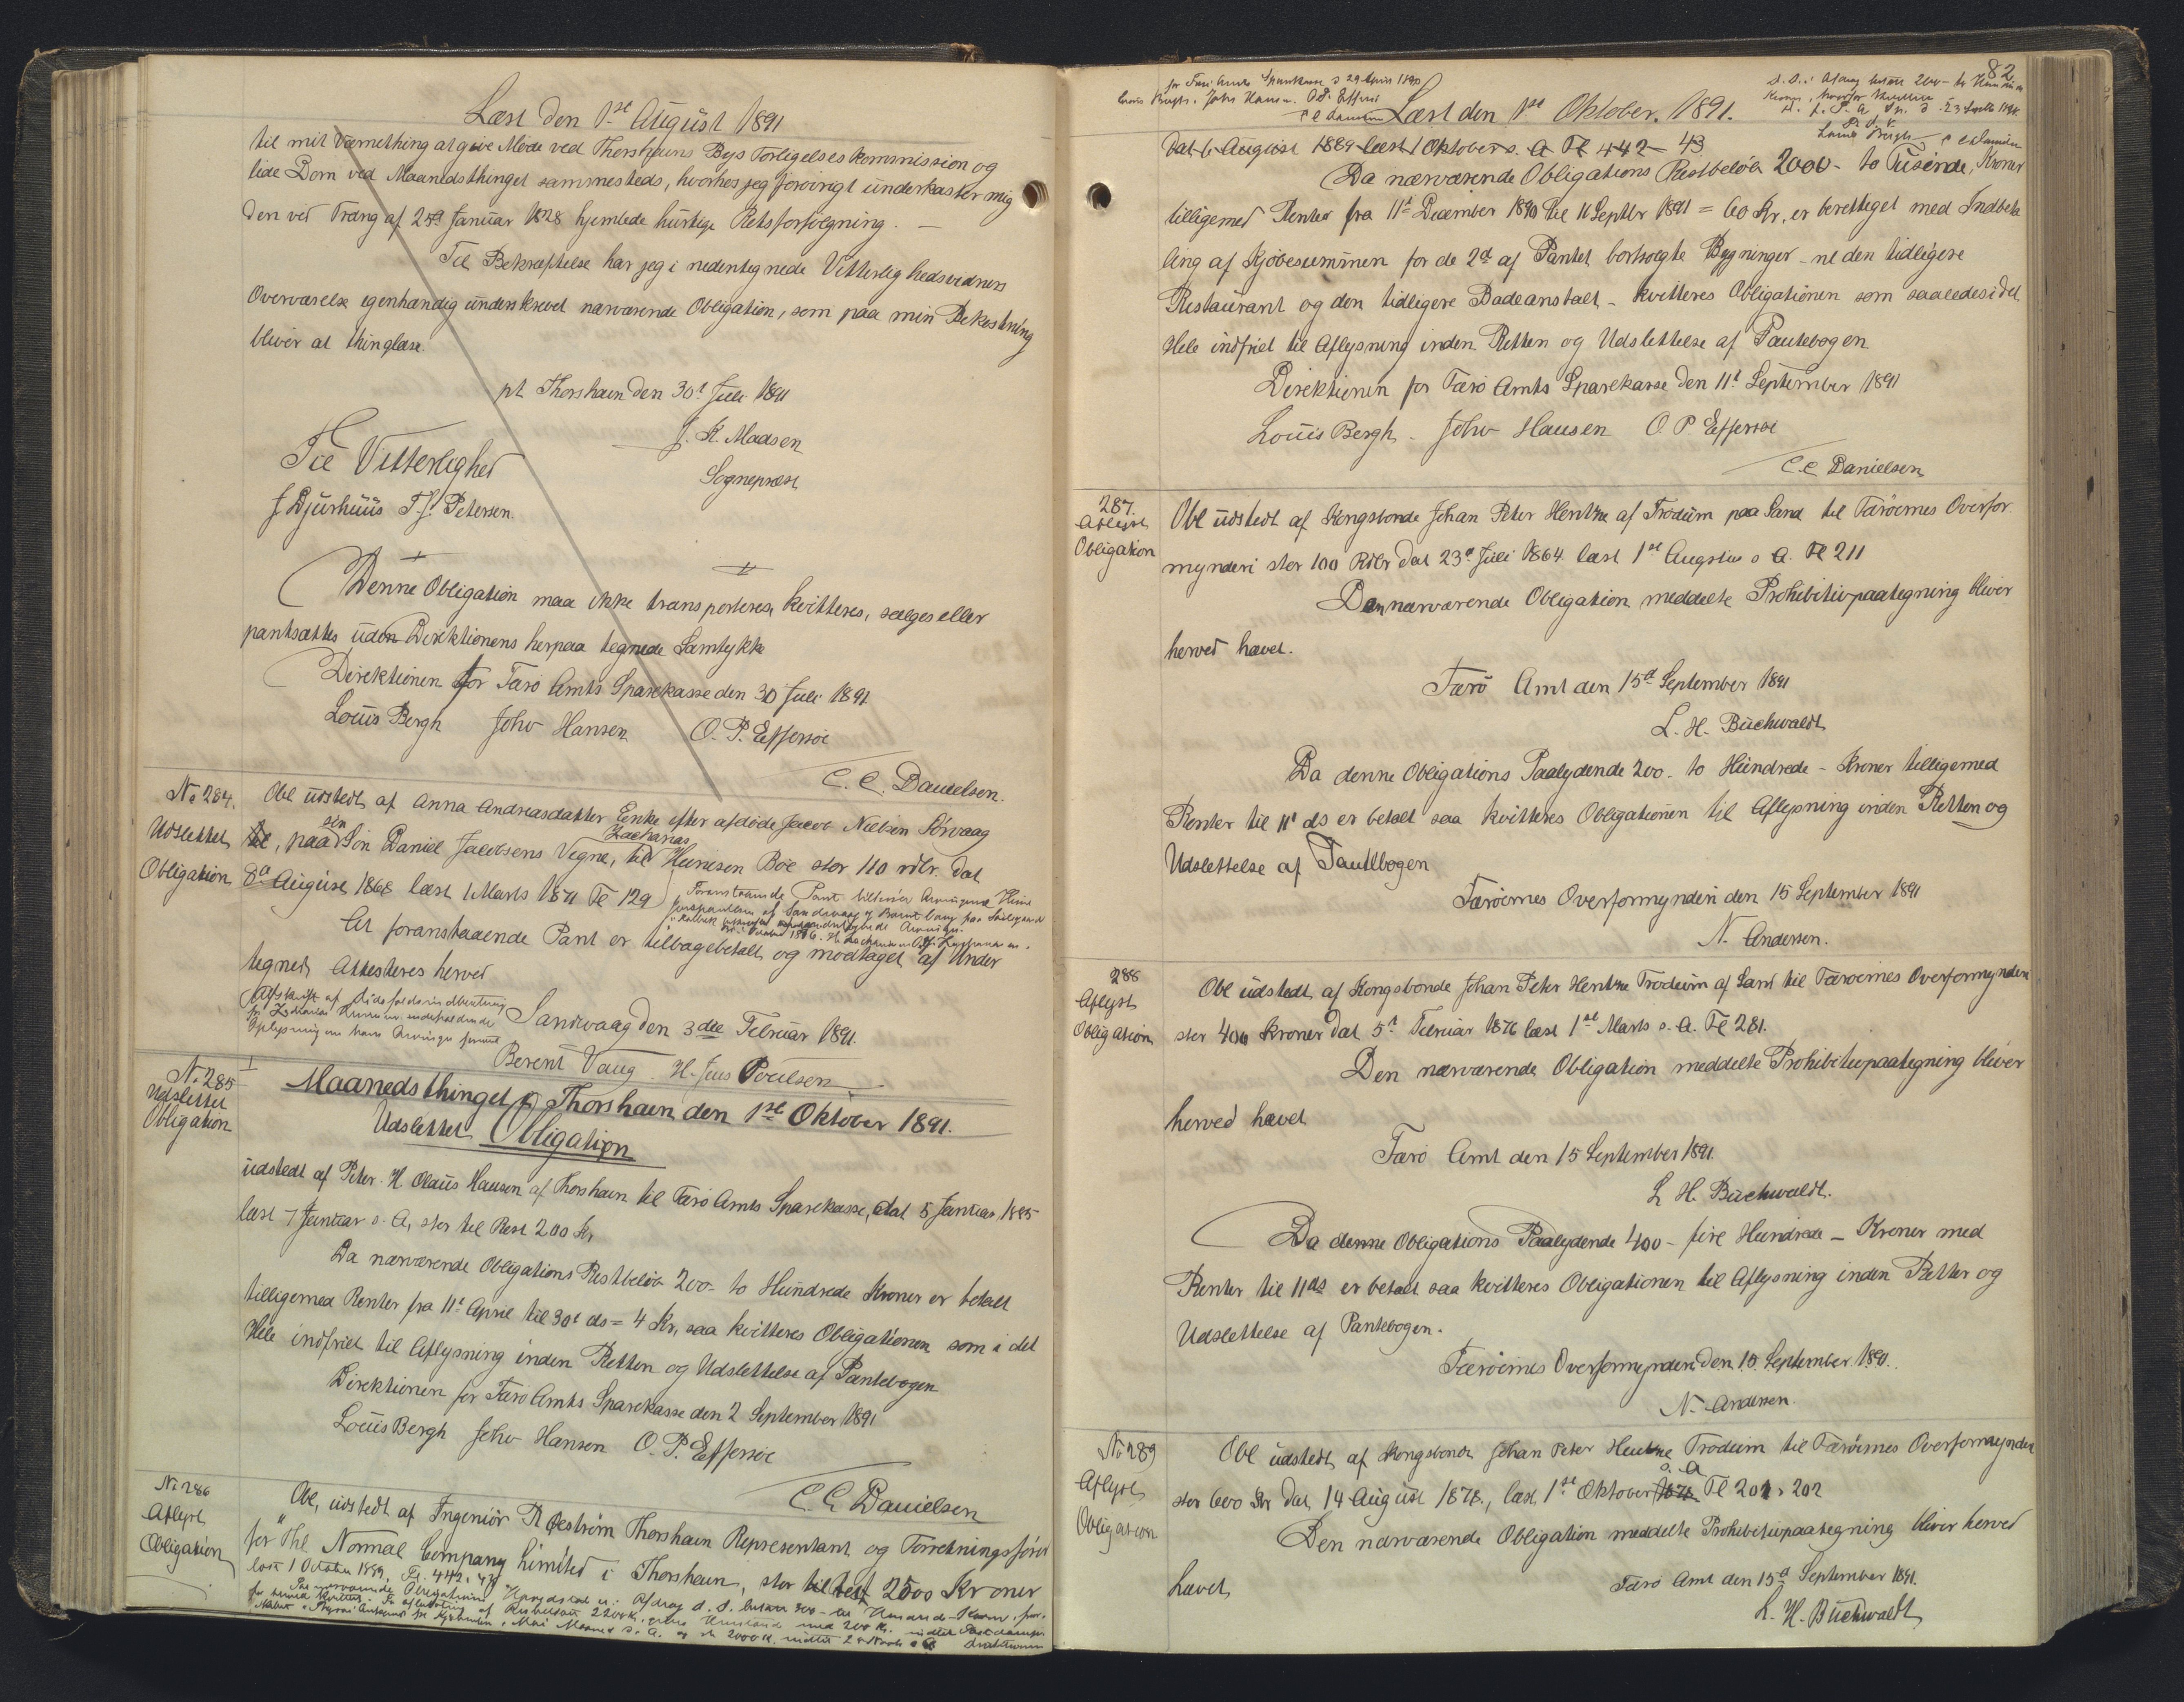 Læst den 1ste August 1891
til mit Værnething at give Møde ved Thorshavns Bys Forligelseskommission og
lide Dom ved Maanedsthinget sammesteds, hvorhos jeg forøvrigt underkaster mig
den ved Frdng af 25d Januar 1828 hjemlede hurtige Retsforfølgning. —
Til Bekræftelse har jeg i nedentegnede Vitterlighedsvidners
Overværelse egenhændig underskrevet nærværende Obligation, som paa min Bekostning
bliver at thinglæse.
pt. Thorshavn den 30t Juli 1891
J. K. Madsen
Sognepræst
Til Vitterlighed
J Djurhuus T. J. Petersen.
Denne Obligation maa ikke transporteres, kvitteres, sælges eller
pantsættes uden Direktionens herpaa tegnede Samtykke
Direktionen for Færø Amts Sparekasse den 30 Juli 1891
Louis Bergh Johs Hansen O. P. Effersøe
C. C. Danielsen.
No 284.
Udslettet
Obligation
Obl udstedt af Anna Andreasdatter Enke efter afdøde Jacob Nielsen Sörvaag
til, paa sin Søn Daniel Jacobsens Vegne, til Zacharias Heinesen Bøe stor 110 rdlr. dat
8d August 1868 læst 1 Marts 1871 Fl 129
At foranstaaende Pant er tilbagebetalt og modtaget af Under
tegnet, Attesteres herved
Sandvaag den 3die Februar 1891.
Berent Vaag. H. Jens Poulsen
No 285
Udslettet
Obligation
Maanedsthinget i Thorshavn den 1ste Oktober 1891.
Udslettet Obligation
udstedt af Peter H. Olaus Hansen af Thorshavn til Færø Amts Sparekasse, dat 5 Januar 1885
læst 7 Januar s. A, stor til Rest 200 Kr
Da nærværende Obligations Restbeløb 200- to Hundrede Kroner er betalt
tilligemed Renter fra 11t April til 30t ds = 4 Kr, saa kvitteres Obligationen som i det
Hele indfriet til Aflysning inden Retten og Udslettelse af Pantebogen
Direktionen for Færø Amts Sparekasse den 2 September 1891
Louis Bergh Johs Hansen O. P. Effersøe
C. C. Danielsen
No 286
Aflyst
Obligation
Obl, udstedt af Ingeniør R Øström Thorshavn Representant og Forretningsfører
for "The Normal Company Limited i Thorshavn, stor til rest 2500 Kroner
læst 1 October 1889, Fl. 442, 43
82
for Færø Amts Sparekasse d 29 April 1890
Louis Bergh. Johs Hansen. O. P. Effersøe
C C Danielsen
Læst den 1ste Oktober. 1891.
Louis Bergh C C Danielsen
Dat 6 August 1889 læst 1 Oktober s. A Fl 442 - 43
Da nærværende Obligations Restbeløb 2000- to Tusinde, Kroner
tilligemed Renter fra 11t December 1890 til 11 Septbr 1891 = 60 Kr, er berettiget med Indbeta
ling af Kjøbesummen for de 2de af Pantet bortsolgte Bygninger - ne den tidligere
Restaurant og den tidligere Badeanstalt - kvitteres Obligationen som saaledes i det
Hele indfriet til Aflysning inden Retten og Udslettelse af Pantebogen
Direktionen for Færø Amts Sparekasse den 11t September 1891
Louis Bergh - Johs Hansen O. P Effersøe
C. C Danielsen
287.
Aflyst
Obligation
Obl udstedt af Kongsbonde Johan Peter Hentze af Trødum paa Sand til Færøernes Overfor
mynderi stor 100 Rdlr dat 23d Juli 1864 læst 1ste August s A. Fl 211
Den nærværende Obligation meddelte Prohibitivpaategning bliver
herved hævet.
Færø Amt den 15d September 1891
L. H. Buchwaldt
Da denne Obligations Paalydende 200 - to Hundrede - Kroner tilligemed
Renter til 11t ds er betalt saa kvitteres Obligationen til Aflysning inden Retten og
Udslettelse af Pantebogen
Færøernes Overformynderi den 15 September 1891
N. Andersen.
288
Aflyst
Obligation
Obl udstedt af Kongsbonde Johan Peter Hentze Trødum af Sand til Færøernes Overformynderi
stor 400 Kroner dat 5t Februar 1876 læst 1ste Marts s. A. Fl 281.
Den nærværende Obligation meddelte Prohibitivpaategning bliver
herved hævet
Færø Amt den 15 September 1891.
L H. Buchwaldt.
Da denne Obligations Paalydende 400 - fire Hundrede - Kroner med
Renter til 11 ds er betalt saa kvitteres Obligationen til Aflysning inden Retten og
Udslettelse af Pantebogen.
Færøernes Overformynderi den 15. September 1891.
N. Andersen.
No 289
Aflyst
Obligation
Obl udstedt af Kongsbonde Johan Peter Hentze Trødum til Færøernes Overformynderi
stor 600 Kr dat 14 August 1878, læst 1ste Oktober s. A Fl 201 - 202
Den nærværende Obligation meddelte Prohibitivpaategning bliver herved
hævet
Færø Amt den 15d September 1891.
L. H. Buchwaldt